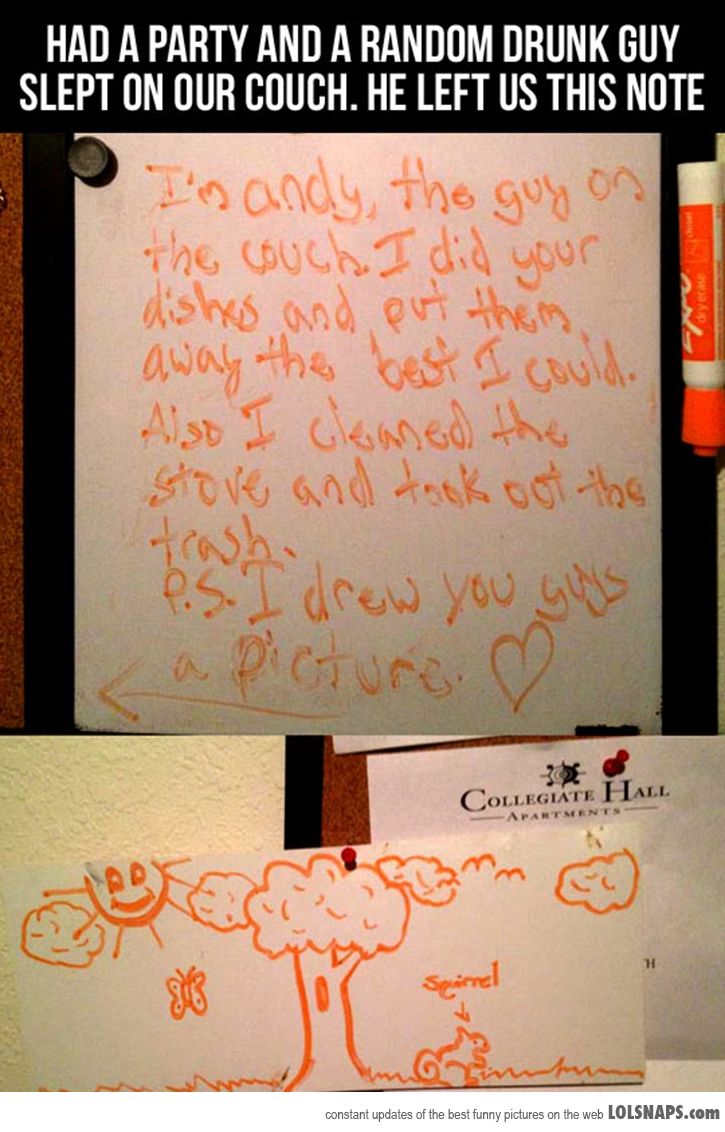 HAD A PARTY AND A RANDOM DRUNK GUY
SLEPT ON OUR COUCH. HE LEFT US THIS NOTE
I'm andy, the guy on
the couch. I did your
dishes and put them
away the best I could.
Also I cleaned the
stove and took out the
trash.
P.S. I drew you guys
a picture.
EXPO
dry erase
chisel
COLLEGIATE HALL
APARTMENTS
squirrel
TH
constant updates of the best funny pictures on the web LOLSNAPS.com